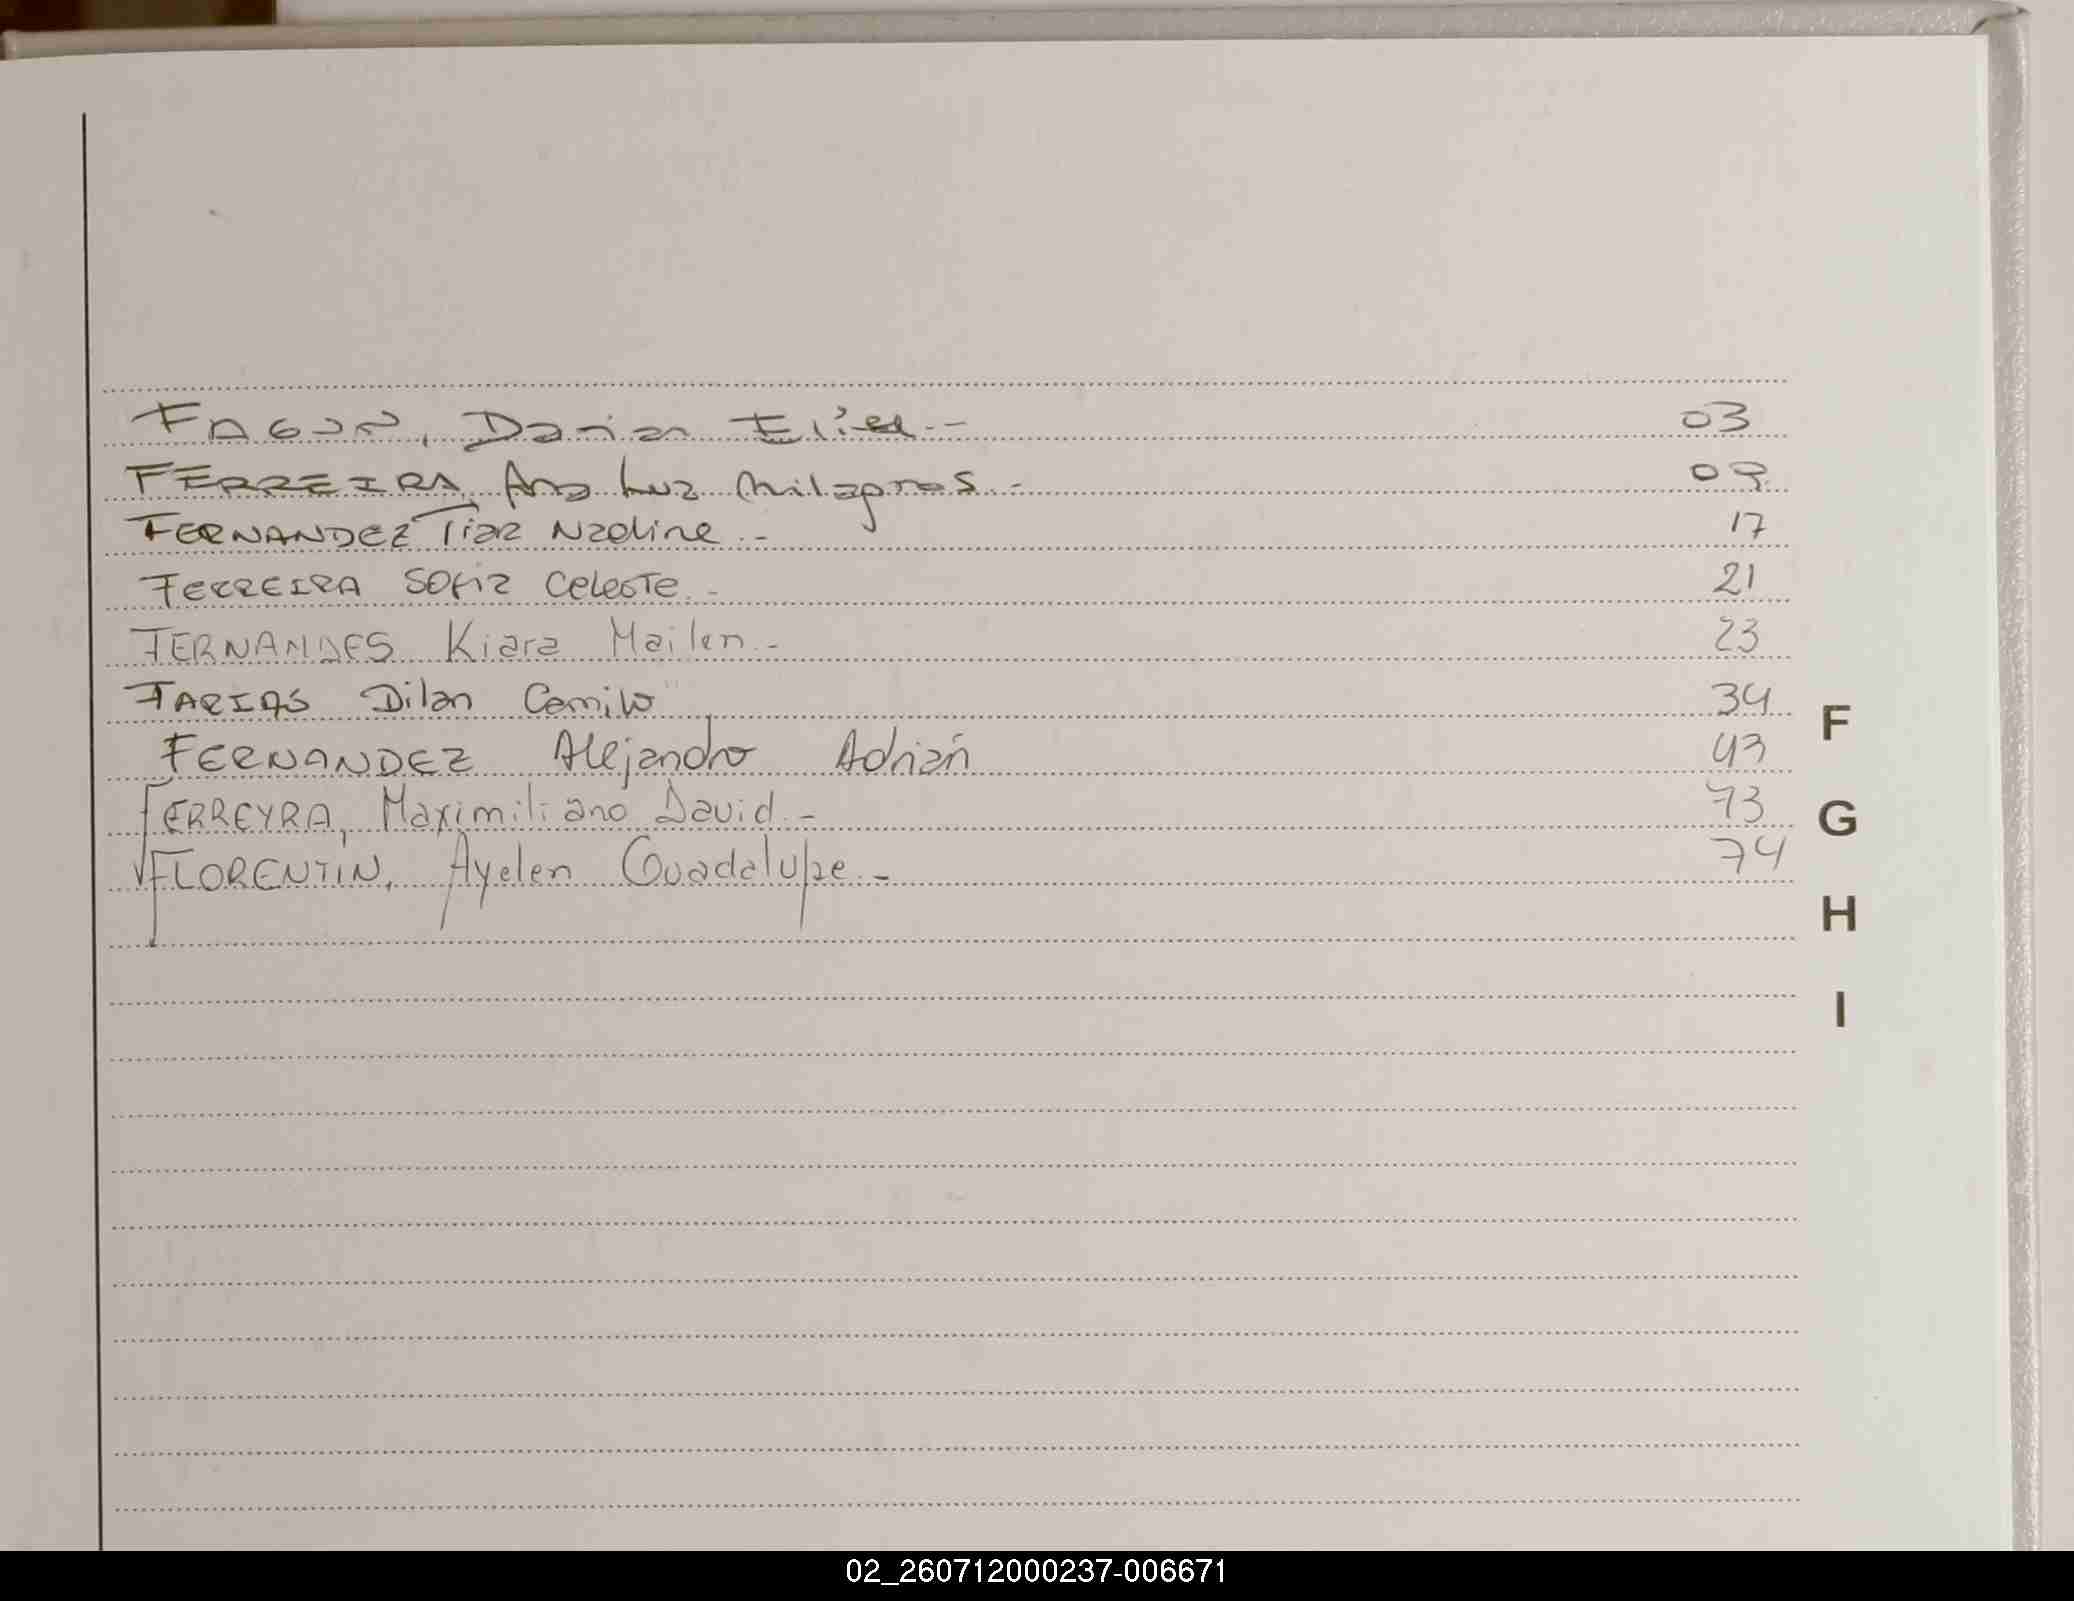 FAGUN, Darian Eliel.- 03
FERREIRA, Ana Luz Milagros.- 09
FERNANDEZ Tiar Nadine.- 17
FERREIRA Sofia Celeste.- 21
FERNANDES Kiara Mailen.- 23
FARIAS Dilan Camilo 34
FERNANDEZ Alejandro Adrián 43
FERREYRA, Maximiliano David.- 73
FLORENTIN, Ayelen Guadalupe.- 74
F
G
H
I
02_260712000237-006671